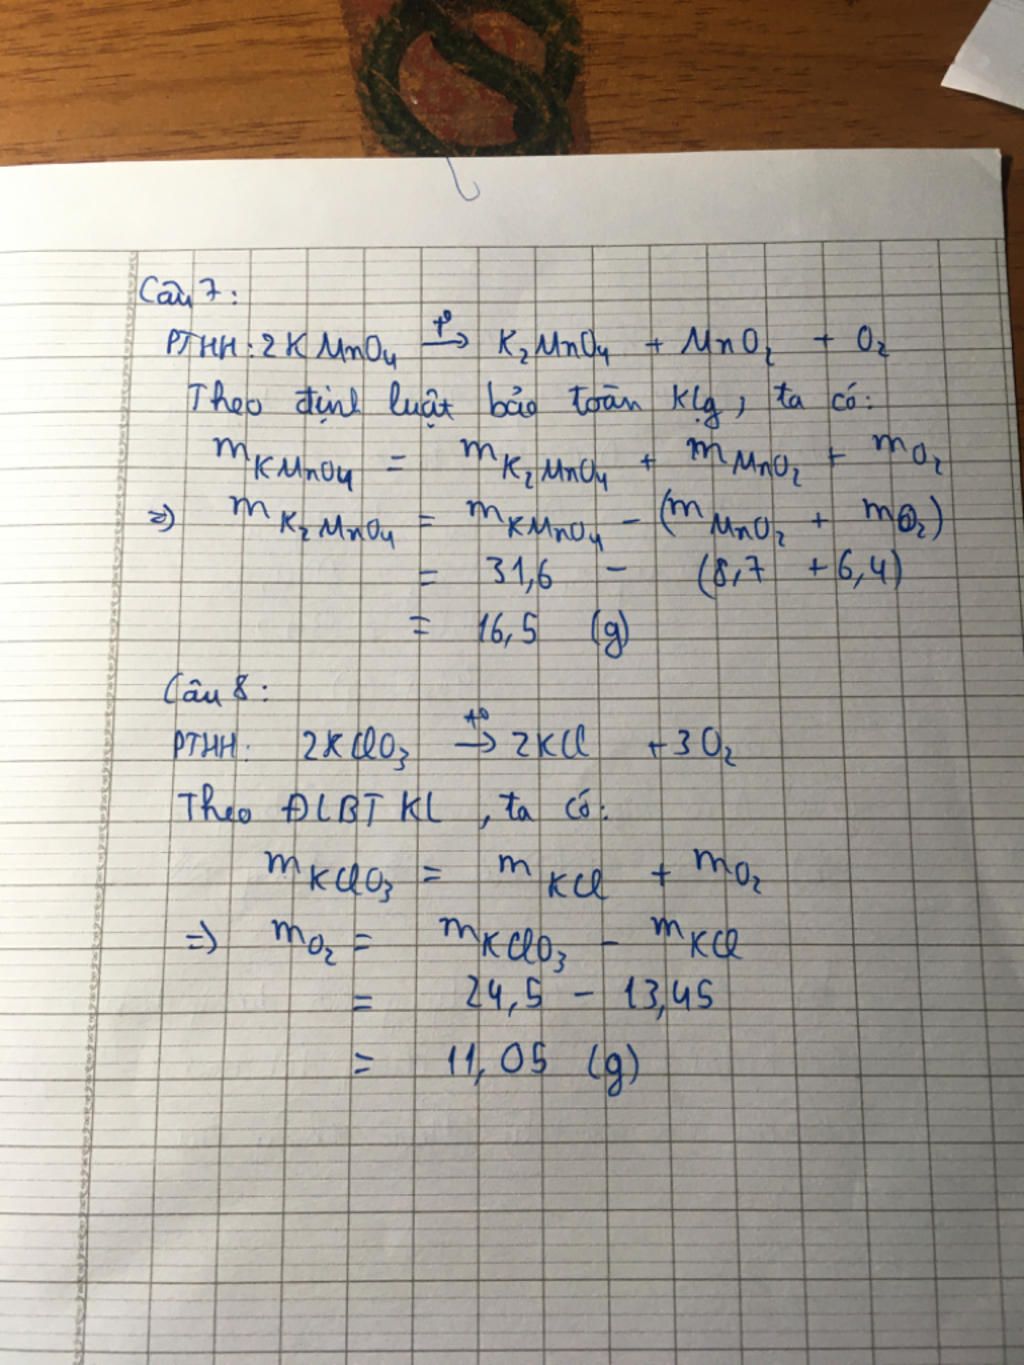 Câu 7:
PTHH: 2KMnO₄ →(t°) K₂MnO₄ + MnO₂ + O₂
Theo định luật bảo toàn klg, ta có:
m KMnO₄ = m K₂MnO₄ + m MnO₂ + m O₂
=> m K₂MnO₄ = m KMnO₄ - (m MnO₂ + m O₂)
= 31,6 - (8,7 + 6,4)
= 16,5 (g)
Câu 8:
PTHH: 2KClO₃ →(t°) 2KCl + 3O₂
Theo ĐLBTKL, ta có:
m KClO₃ = m KCl + m O₂
=> m O₂ = m KClO₃ - m KCl
= 24,5 - 13,45
= 11,05 (g)